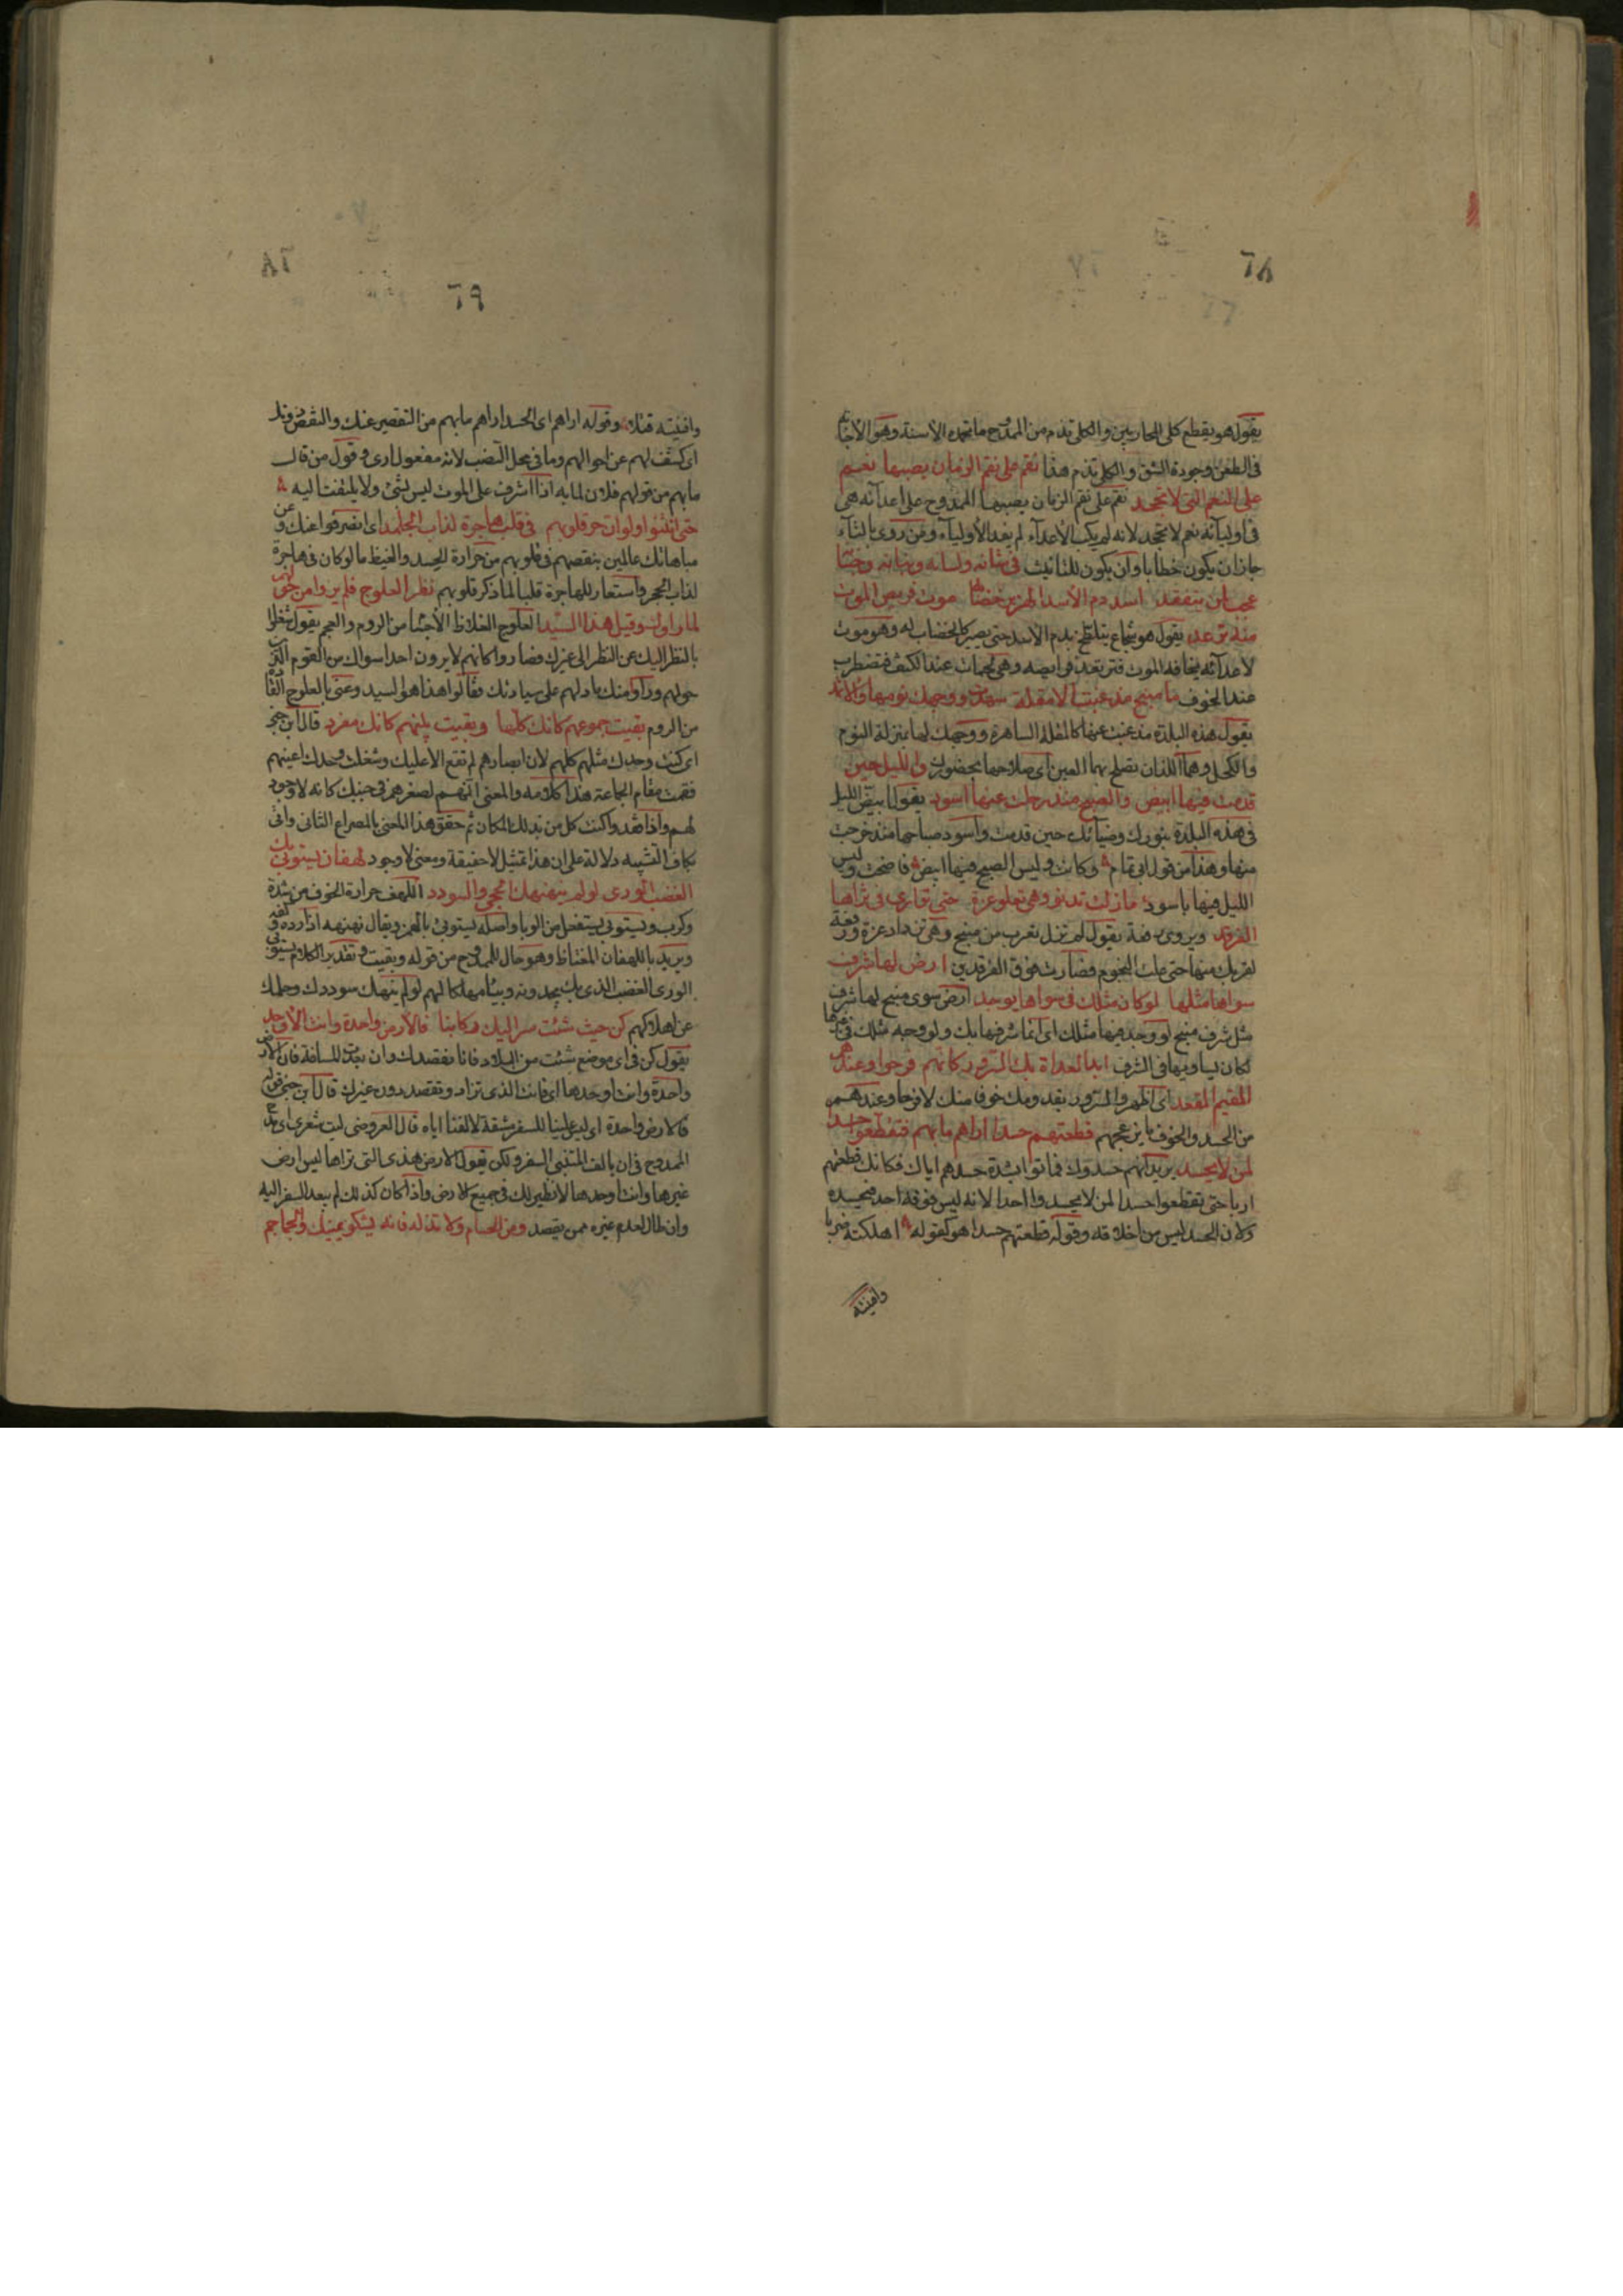 ٦٨
يقول هو يقطع كلى المحاربين والكلى تذم من الممدوح ما تحمده الاسنة وهو الاجادة
فى الطعن وجودة الشق والكلى تذم هذا نقم على نقم الزمان يصبها نعم
على النعم التى لا تجحد نقم على نقم الزمان يصبها الممدوح على اعدائه هى
فى اوليائه نعم لا تجحد لانه لم يكب الأعداء لم يفد الأولياء ومن روى بالتاء
جاز ان يكون خطابا وان يكون للتانيث فى شانه ولسانه وبنانه وجنانه
عجب لمن يتفقد اسد دم الأسد الهزبر خضابه موت فريص الموت
منه ترعد يقول هو شجاع يتلطخ بدم الاسد حتى يصير كالخضاب له وهو موت
لاعدائه يخافه الموت فترتعد فرايصه وهى لحمات عند الكتف تضطرب
عند الخوف ما منبج مذ غبت الا مقلة سهدت ووجهك نومها والاثمد
يقول هذه البلدة مذ غبت عنها كالمقلة الساهرة ووجهك لها بمنزلة النوم
والكحل وهما اللذان تصلح بهما العين اى صلاحها بحضورك والليل حين
قدمت فيها ابيض والصبح منذ رحلت عنها اسود يقول ابيض الليل
فى هذه البلدة بنورك وضيائك حين قدمت واسود صباحها منذ خرجت
منها وهذا من قول ابى تمام وكانت وليس الصبح فيها ابيض فاضحت وليس
الليل فيها باسود ما زلت تدنو وهى تعلو عزة حتى توارى فى ثراها
الفرقد ويروى رفعة يقول لم تزل تقرب من منبج وهى تزداد عزة ورفعة
لقربك منها حتى علت النجوم فصارت فوق الفرقدين ارض لها شرف
سواها مثلها لو كان مثلك فى سواها يوجد ارض سوى منبج لها شرف
مثل شرف منبج لو وجد فيها مثلك اى انما شرفها بك ولو وجد مثلك فى غيرها
لكان يساويها فى الشرف ابدا العداة بك السرور كانهم فرحوا وعندهم
المقيم المقعد اى اظهروا السرور بقدومك خوفا منك لا فرحا وعندهم
من الحسد والخوف ما يزعجهم قطعتهم حسدا اراهم ما بهم فتقطعوا حسدا
لمن لا يحسد يريد انهم حسدوك فماتوا بشدة حسدهم اياك فكانك قطعتهم
اربا حتى تقطعوا حسدا لمن لا يحسد واحدا لانه ليس فوقه احد فيحسده
ولان الحسد ليس من اخلاقه وقوله قطعتهم حسدا هو كقوله اهلكته ضربا
وافنيته
٦٩
وافنيته قتلا وقوله اراهم اى الحسد اراهم ما بهم من التقصير عنك والنقص دونك
اى كشف لهم عن احوالهم وما فى محل النصب لانه مفعول ارى وقول من قال
ما بهم من قولهم فلان لما به اذا اشرف على الموت ليس بشئ ولا يلتفت اليه
حتى انثنوا ولو ان حر قلوبهم فى قلب هاجرة لذاب الجلمد اى انصرفوا عنك وعن
مباهاتك عالمين بنقصهم فى قلوبهم من حرارة الحسد والغيظ ما لو كان فى هاجرة
لذاب الحجر واستعار للهاجرة قلبا لما ذكر قلوبهم نظر العلوج فلم يروا من حولهم
لما راوك وقيل هذا السيد العلوج الغلاظ الأجسام من الروم والعجم يقول شغلوا
بالنظر اليك عن النظر الى غيرك فصاروا كانهم لا يرون احدا سواك من القوم الذين
حولهم وراوا منك ما دلهم على سيادتك فقالوا هذا هو السيد وعنى بالعلوج
من الروم بقيت جموعهم كانك كلها وبقيت بينهم كانك مفرد قال ابن جنى
اى كنت وحدك مثلهم كلهم لان ابصارهم لم تقع الا عليك وشغلت وحدك اعينهم
فقمت مقام الجماعة هذا كلامه والمعنى انهم لصغرهم فى جنبك كانه لا وجود
لهم واذا فقدوا كنت كل من بذلك المكان ثم حقق هذا المعنى بالمصراع الثانى واتى
بكاف التشبيه دلالة على ان هذا تمثيل لا حقيقة ومعنى لا وجود لهفان يستوبى بك
الغضب الورى لو لم ينهنهك الحجى والسودد اللهف حرارة الجوف من شدة
وكرب ويستوبى يستفعل من الوبا واصله يستوبئ بالهمز ويقال نهنهه اذا رده وكفه
ويريد باللهفان المغتاظ وهو حال للممدوح من قوله وبقيت وتقدير الكلام يستوبى
الورى الغضب الذى بك يجدونه وبيئا مهلكا لهم لو لم ينهك سوددك وحلمك
عن اهلاكهم كن حيث شئت تسر اليك ركابنا فالأرض واحدة وانت الأوحد
يقول كن فى اى موضع شئت من البلاد فانا نقصدك وان بعدت المسافة فان الأرض
واحدة وانت اوحدها اى فانت الذى تزاد وتقصد دون غيرك قال ابن جنى قوله
فالارض واحدة اى ليس علينا للسفر مشقة لالفنا اياه قال العروضى ليت شعرى اى مدح
للممدوح فى ان يالف المتنبى السفر ولكن يقول الارض هذى التى تراها ليس ارض
غيرها وانت اوحدها لا نظير لك فى جميع الارض واذا كان كذلك لم يبعد السفر اليه
وان طال لعدم غيره ممن يقصد وصن الحسام ولا تذله فانه يشكو يمينك والجماجم